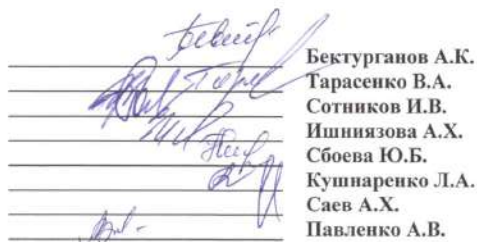 Бектурганов А.К.
Тарасенко В.А.
Сотников И.В.
Ишниязова А.Х.
Сбоева Ю.Б.
Кушнаренко Л.А.
Саев А.Х.
Павленко А.В.